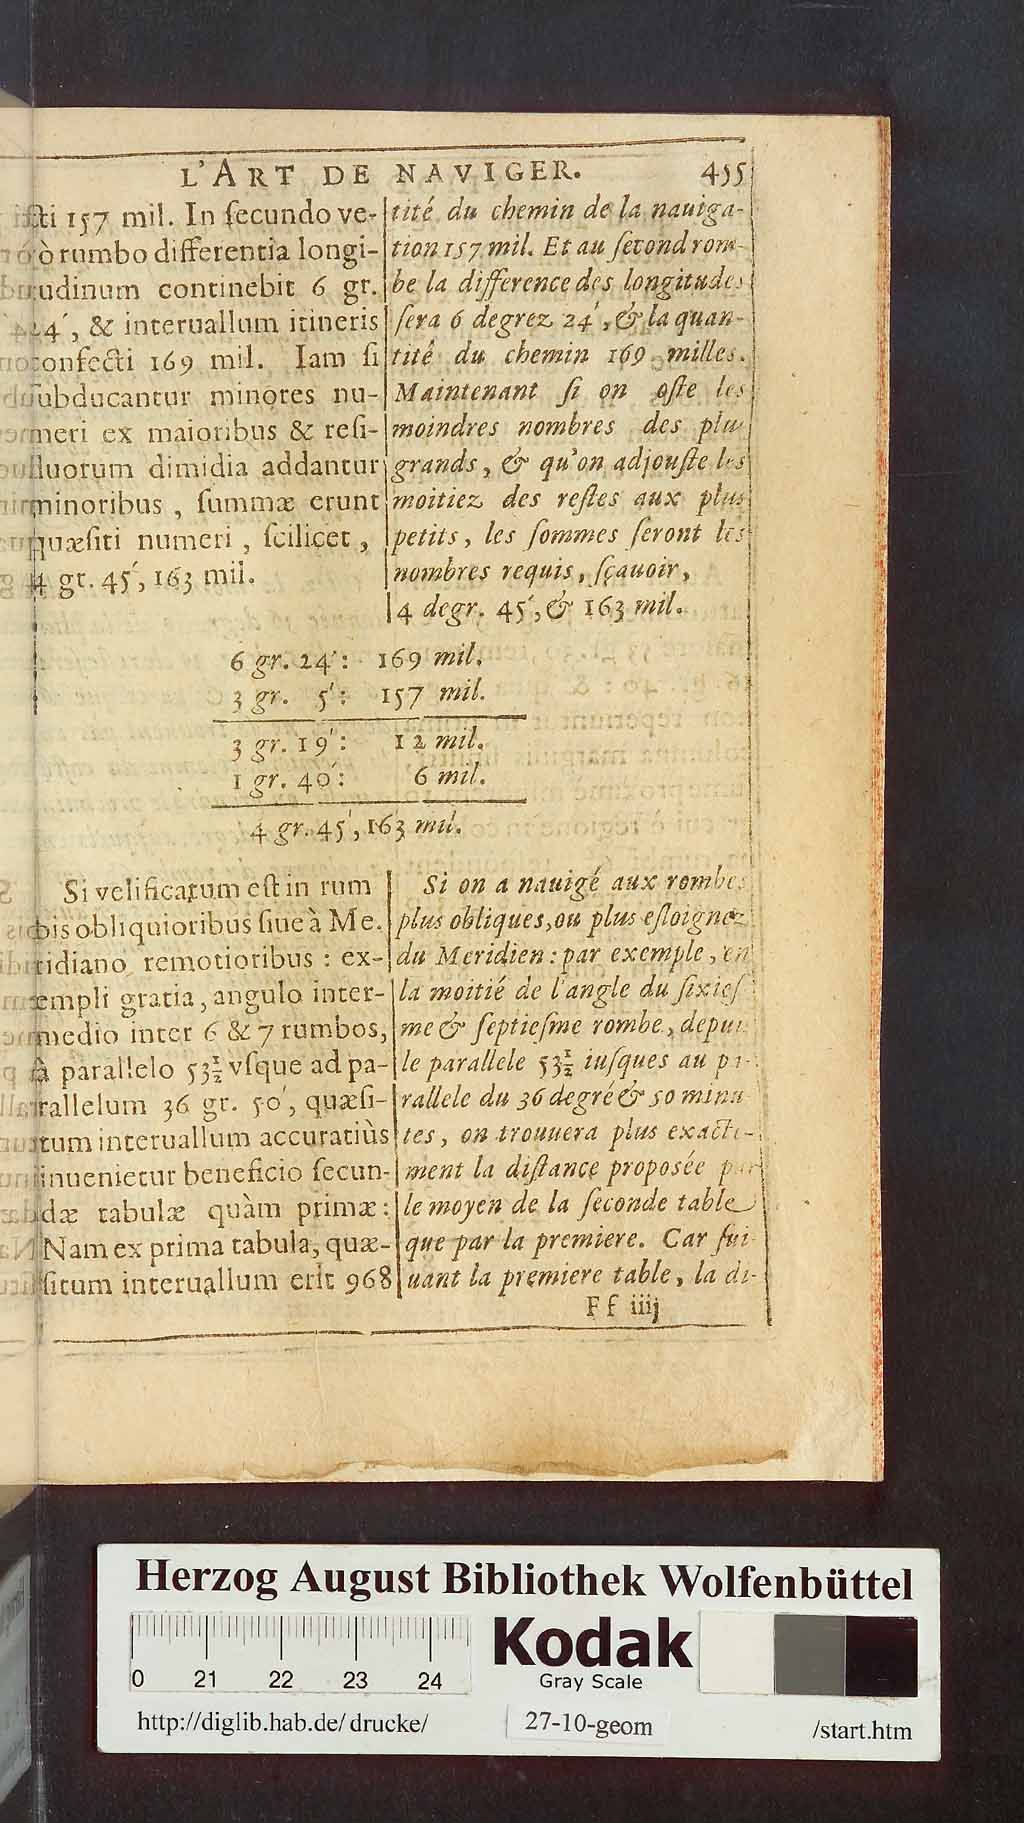 L'ART DE NAVIGER. 455
cti 157 mil. In ſecundo ve-
rò rumbo differentia longi-
tudinum continebit 6 gr.
24′, & interuallum itineris
confecti 169 mil. Iam ſi
ſubducantur minores nu-
meri ex maioribus & reſi-
duorum dimidia addantur
minoribus, ſummæ erunt
quæſiti numeri, ſcilicet,
4 gr. 45′, 163 mil.
tité du chemin de la nauiga-
tion 157 mil. Et au ſecond rom-
be la difference des longitudes
ſera 6 degrez 24′, & la quan-
tité du chemin 169 milles.
Maintenant ſi on oſte les
moindres nombres des plus
grands, & qu'on adjouſte les
moitiez des reſtes aux plus
petits, les ſommes ſeront les
nombres requis, ſçauoir,
4 degr. 45′, & 163 mil.
6 gr. 24′: 169 mil.
3 gr. 5′: 157 mil.
3 gr. 19′: 12 mil.
1 gr. 40′: 6 mil.
4 gr. 45′, 163 mil.
Si velificatum eſt in rum
bis obliquioribus ſiue à Me.
ridiano remotioribus: ex-
empli gratia, angulo inter-
medio inter 6 & 7 rumbos,
à parallelo 53½ vſque ad pa-
rallelum 36 gr. 50′, quæſi-
tum interuallum accuratiùs
inuenietur beneficio ſecun-
dæ tabulæ quàm primæ:
Nam ex prima tabula, quæ-
ſitum interuallum erit 968
Si on a nauigé aux rombes
plus obliques, ou plus eſloignez
du Meridien: par exemple, en
la moitié de l'angle du ſixieſ
me & ſeptieſme rombe, depuis
le parallele 53½ iuſques au pa-
rallele du 36 degré & 50 minu
tes, on trouuera plus exacte-
ment la diſtance propoſée par
le moyen de la ſeconde table
que par la premiere. Car ſui-
uant la premiere table, la di-
Ff iiij
Herzog August Bibliothek Wolfenbüttel
0 21 22 23 24
Kodak
Gray Scale
http://diglib.hab.de/drucke/ 27-10-geom /start.htm